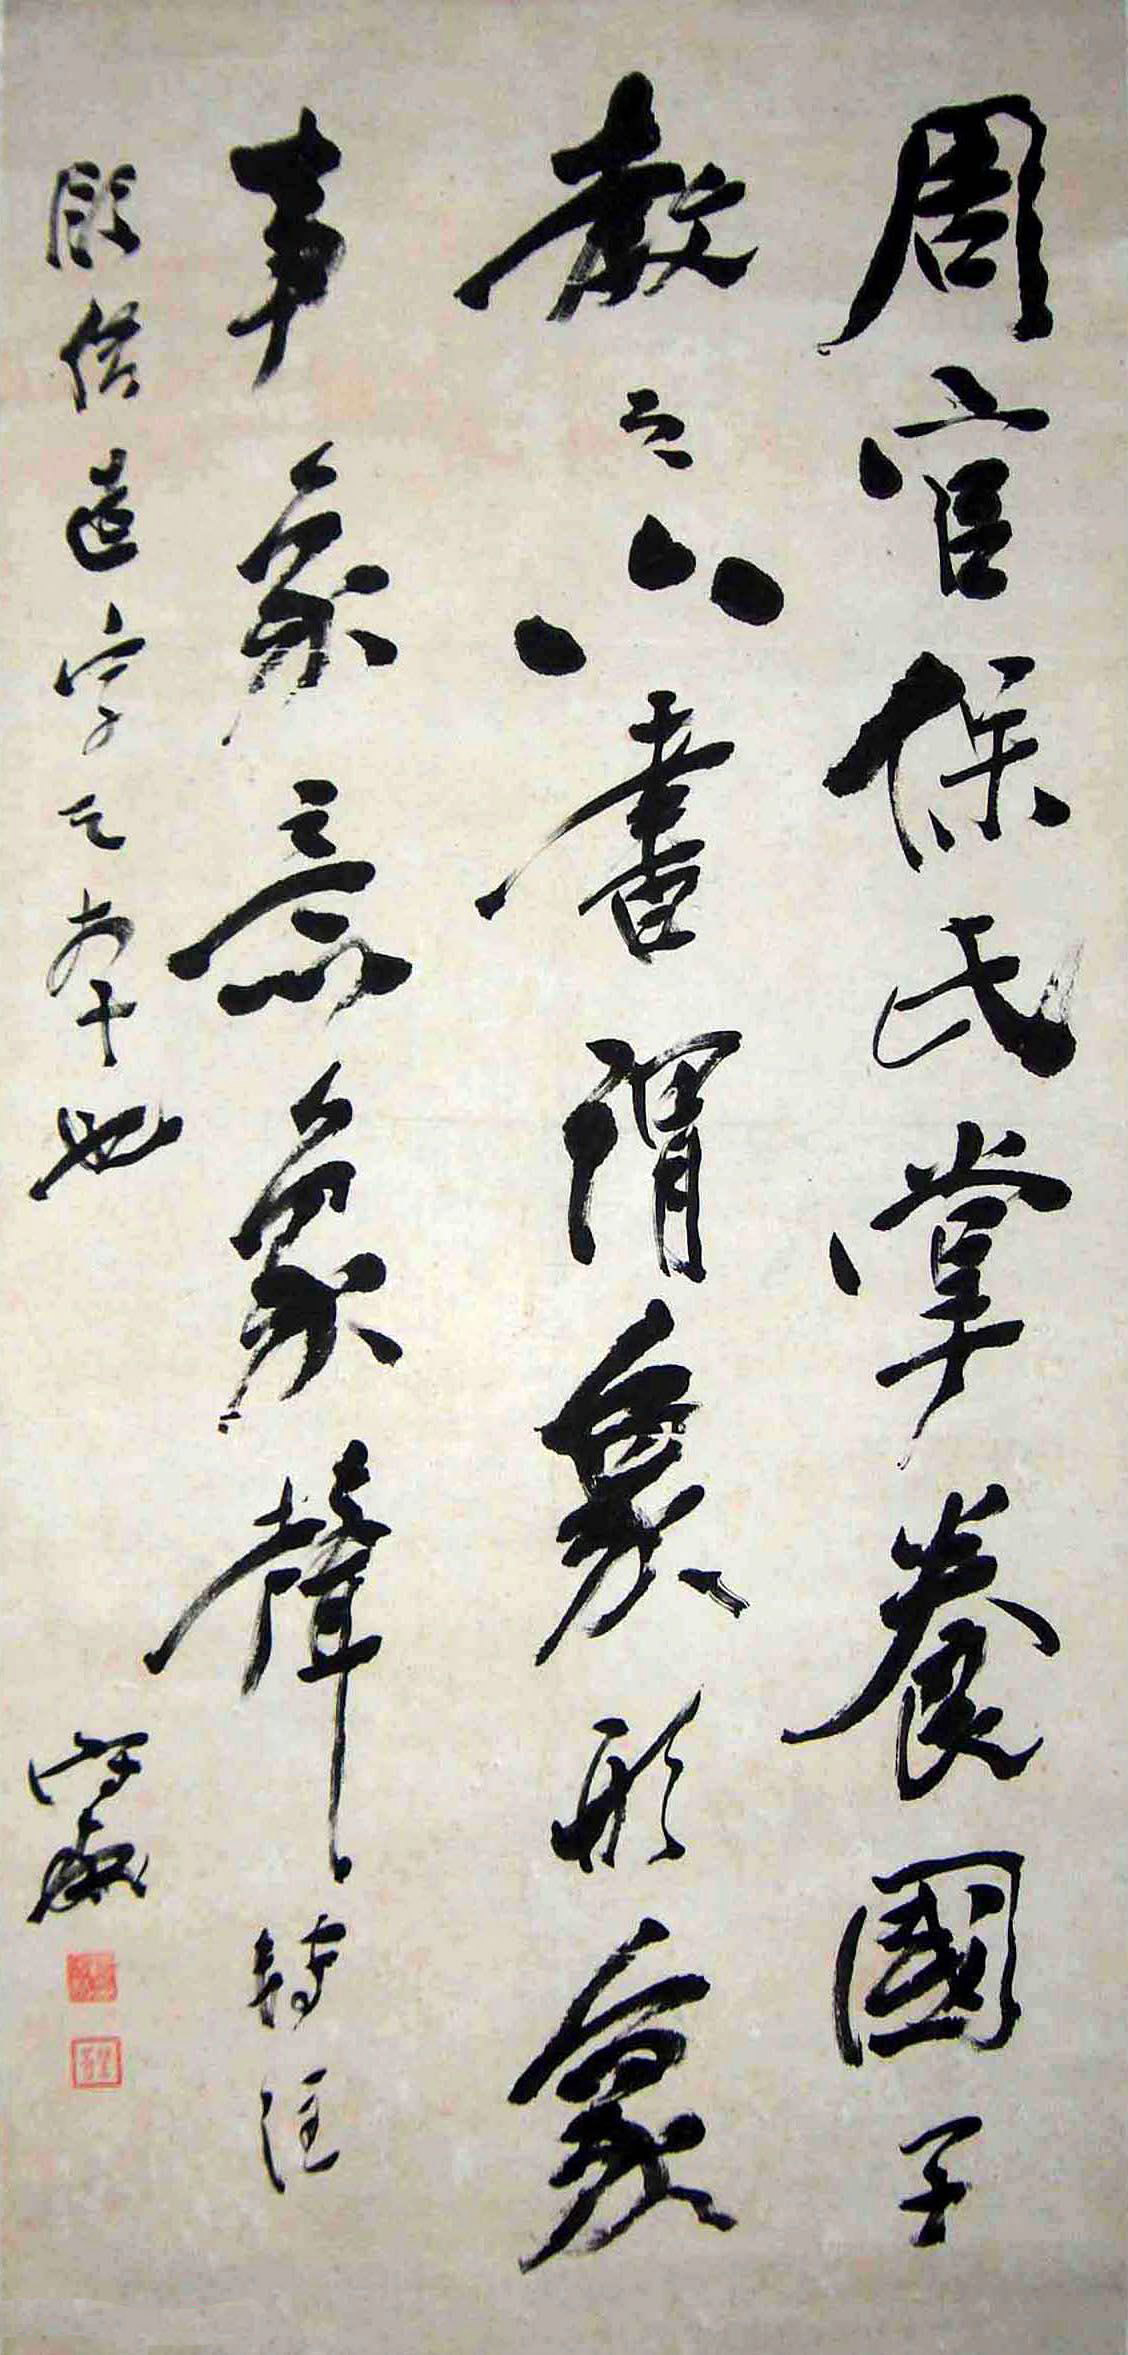 周官保氏掌養國子
教之六書謂象形象
事象意象聲轉注
假借造字之本也